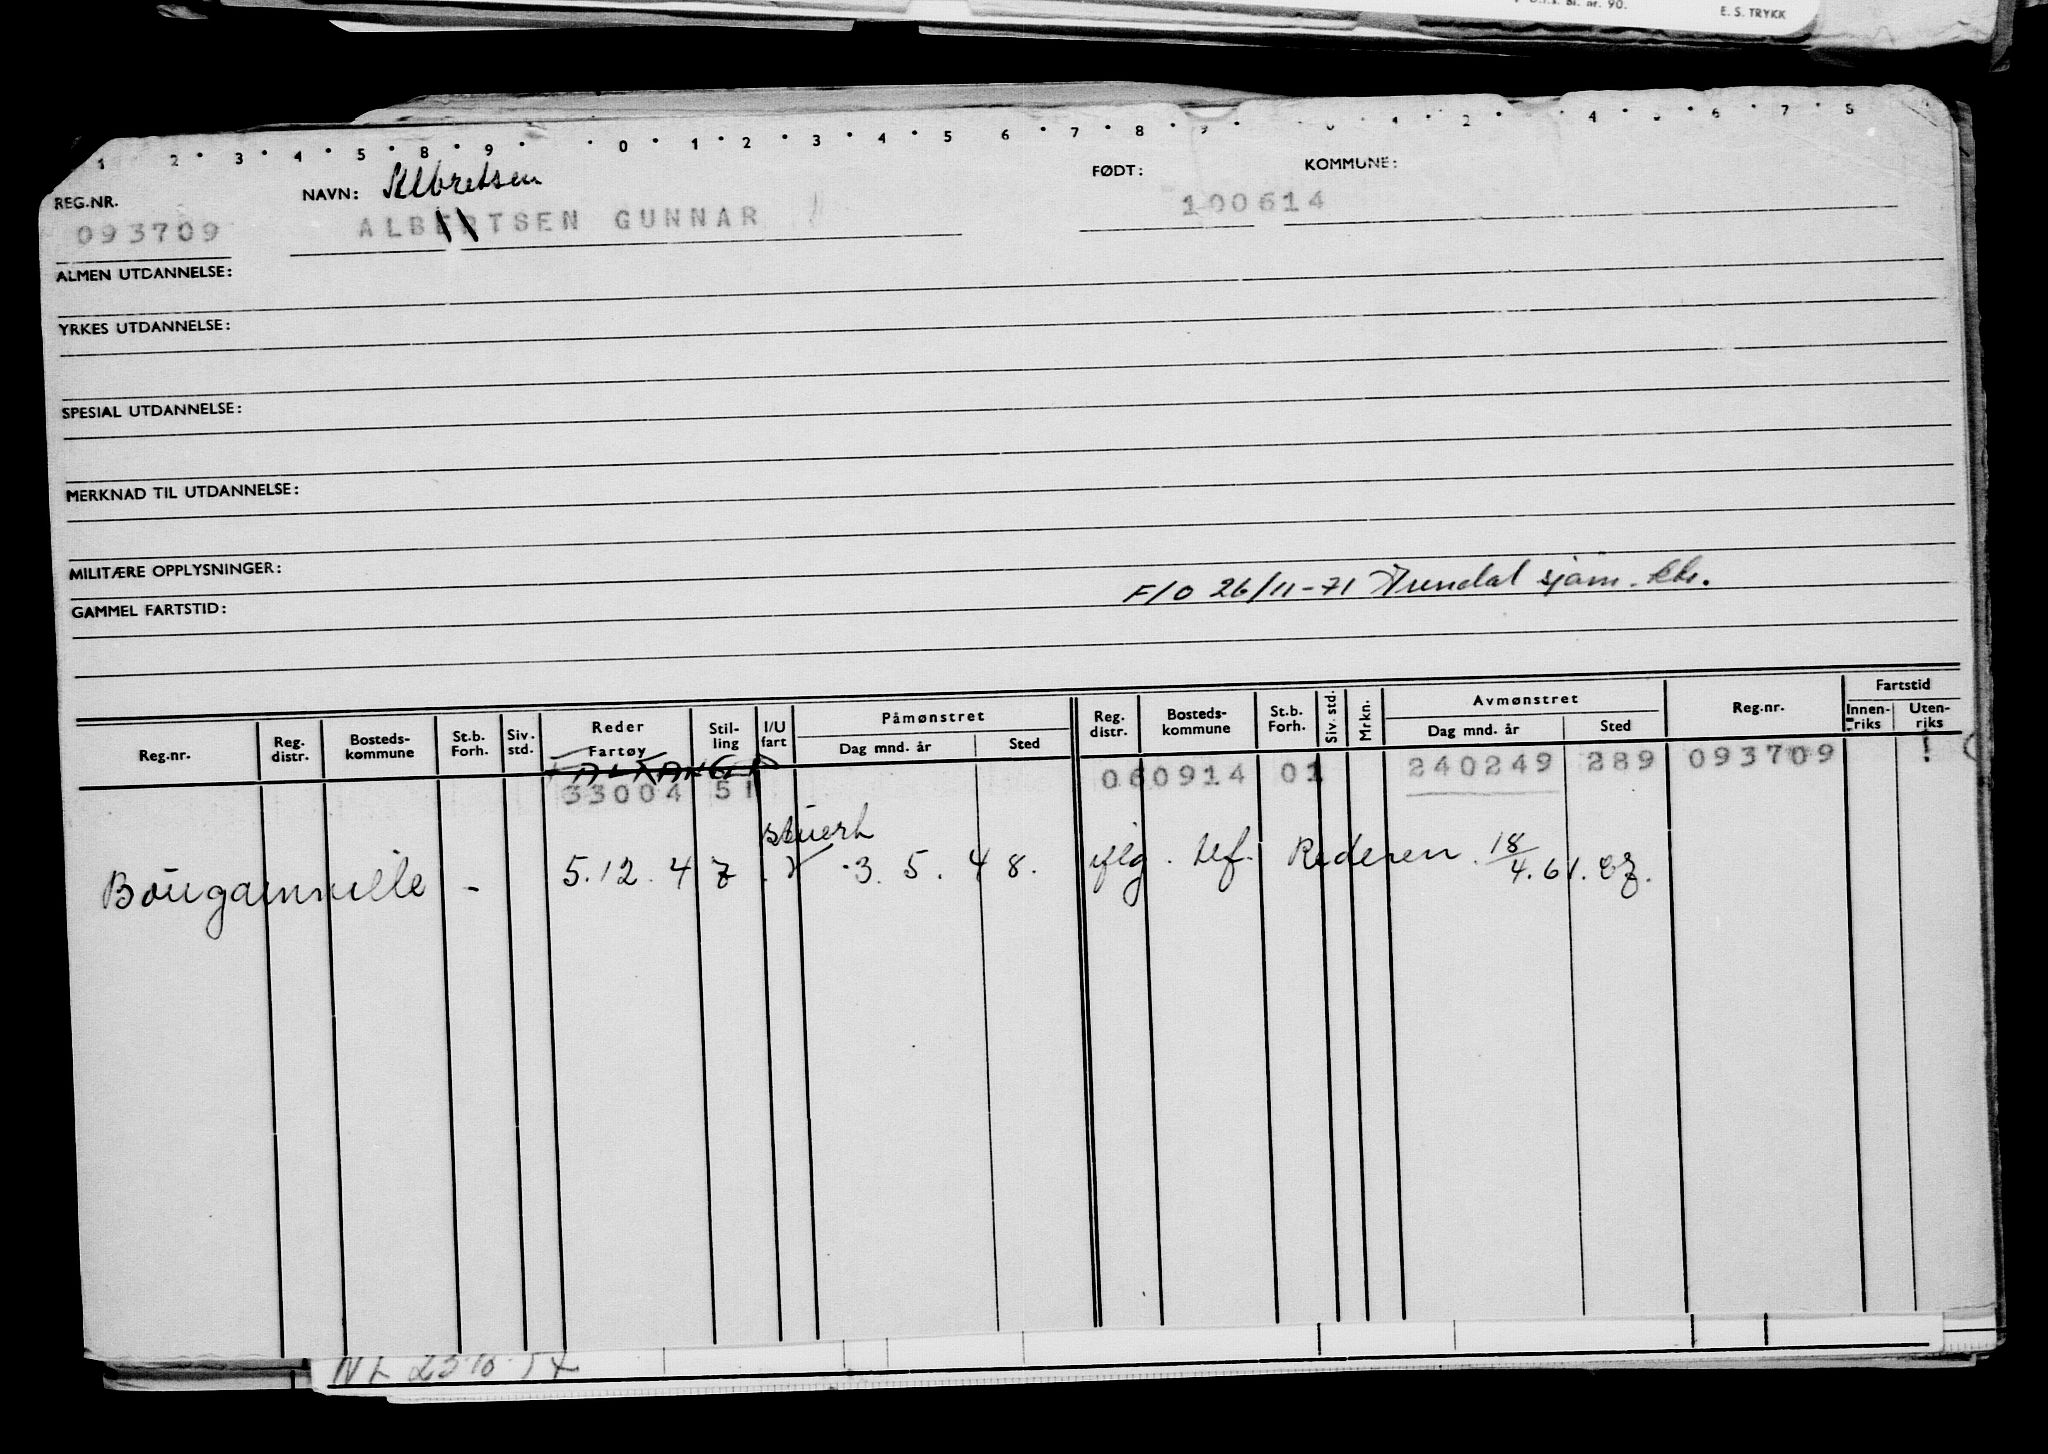 Bl. nr. 90.
E. S. TRYKK
1 2 3 4 5 8 9 0 1 2 3 4 5 6 7 8 9 0 1 2 4 5 6 7 8
REG.NR. NAVN: Albretsen FØDT: KOMMUNE:
093709 ALBERTSEN GUNNAR 100614
ALMEN UTDANNELSE:
YRKES UTDANNELSE:
SPESIAL UTDANNELSE:
MERKNAD TIL UTDANNELSE:
MILITÆRE OPPLYSNINGER:
F/O 26/11-71 Arendal sjøm. ktr.
GAMMEL FARTSTID:
Reg.nr. Reg. distr. Bosteds-kommune St.b. Forh. Siv. std. Reder Fartøy Stil-ling I/U fart Påmønstret Dag mnd. år Sted Reg. distr. Bosteds-kommune St.b. Forh. Siv. std. Mrkn. Avmønstret Dag mnd. år Sted Reg.nr. Fartstid Innen-riks Uten-riks
FALKANGER
33004 51 060914 01 240249 289 093709
stuert
Bougainville - 5.12.47 3.5.48. iflg. Rederen 18/4.61.